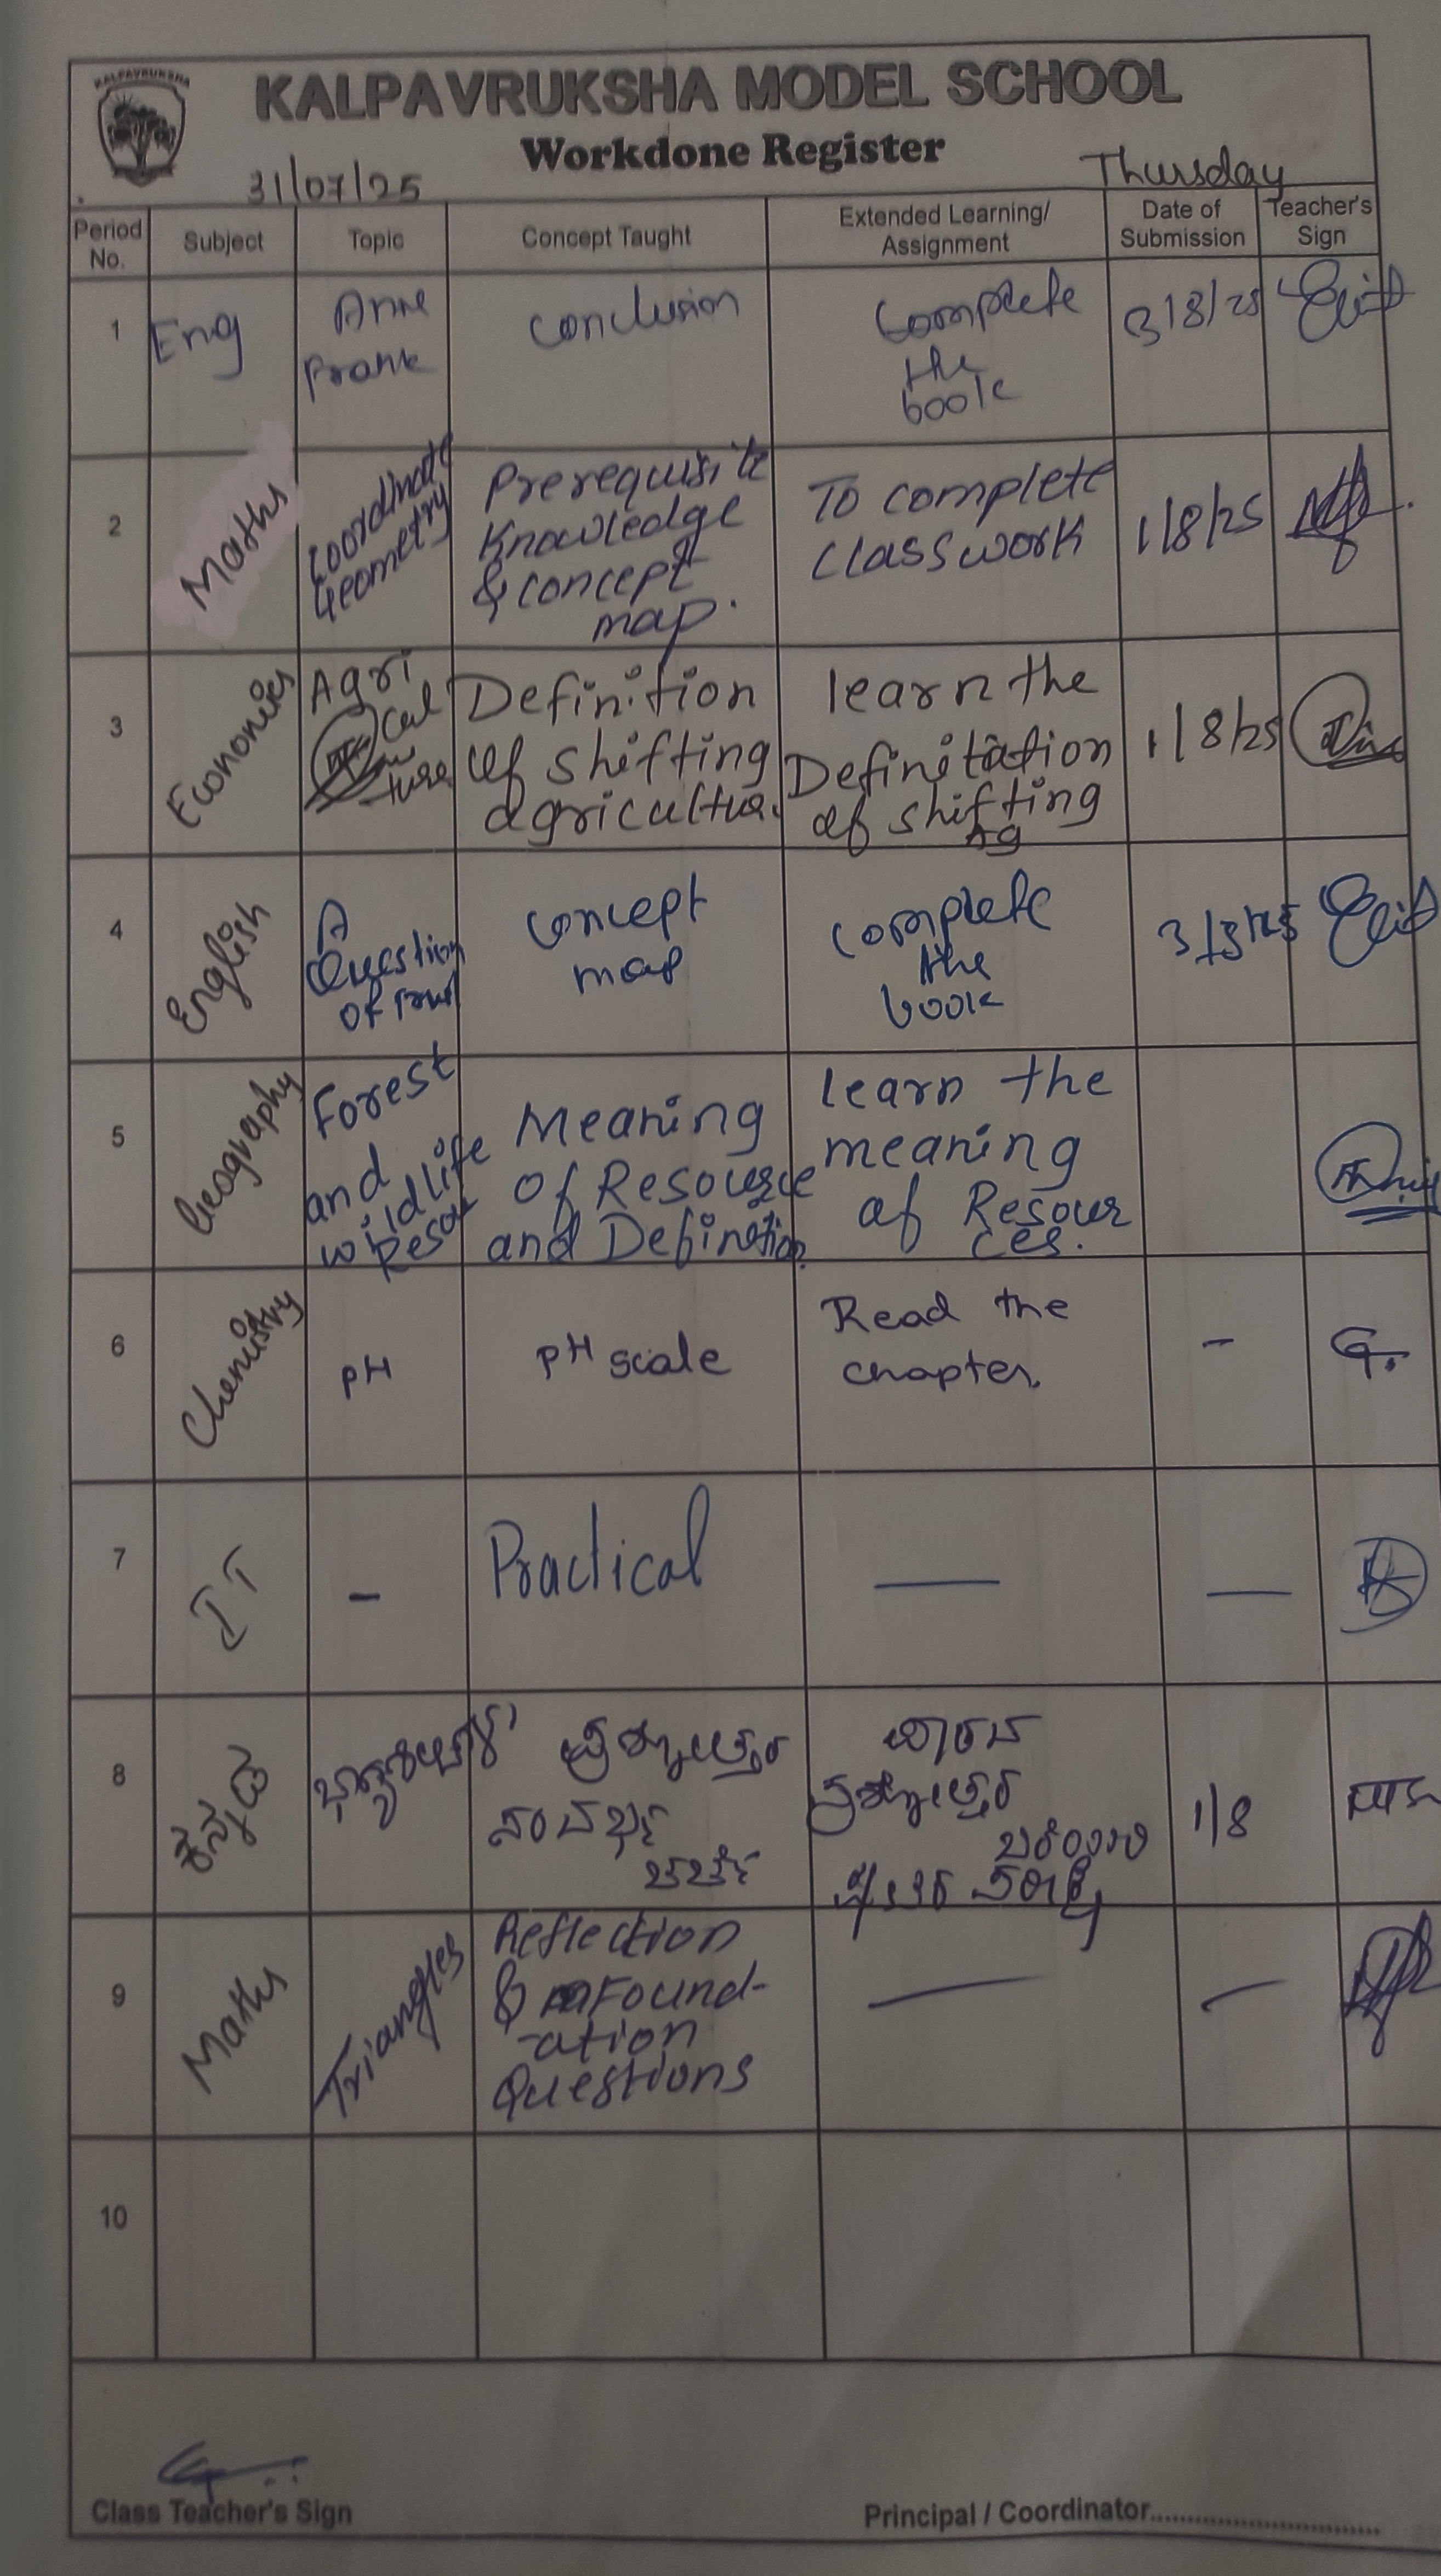 KALPAVRUKSHA
KALPAVRUKSHA MODEL SCHOOL
Workdone Register
31/07/25
Thursday
Period No.
Subject
Topic
Concept Taught
Extended Learning/
Assignment
Date of
Submission
Teacher's
Sign
1
Eng
Anne
Frank
Conclusion
Complete
the
book
3/8/25
2
Maths
Coordinate
Geometry
Prerequisite
Knowledge
& concept
map.
To complete
classwork
1/8/25
3
Economics
Agri
cul
ture
Definition
of shifting
agricultur.
learn the
Definitation
of shifting
Ag
1/8/25
4
English
A
Question
of
Concept
map
Complete
the
book
3/8/25
5
Geography
Forest
and
wildlife
Resou
Meaning
of Resource
and Defination
learn the
meaning
of Resour
ces.
6
Chemistry
pH
pH scale
Read the
chapter.
-
G.
7
IT
-
Practical
—
—
8
ಕನ್ನಡ
ಪ್ರಶ್ನೋತ್ತರ
ಸಂದರ್ಭ
ಚರ್ಚೆ
ಪಾಠದ
ಪ್ರಶ್ನೋತ್ತರ
1/8
9
Maths
Triangles
Reflection
& Found-
-ation
Questions
—
—
10
Class Teacher's Sign
Principal / Coordinator